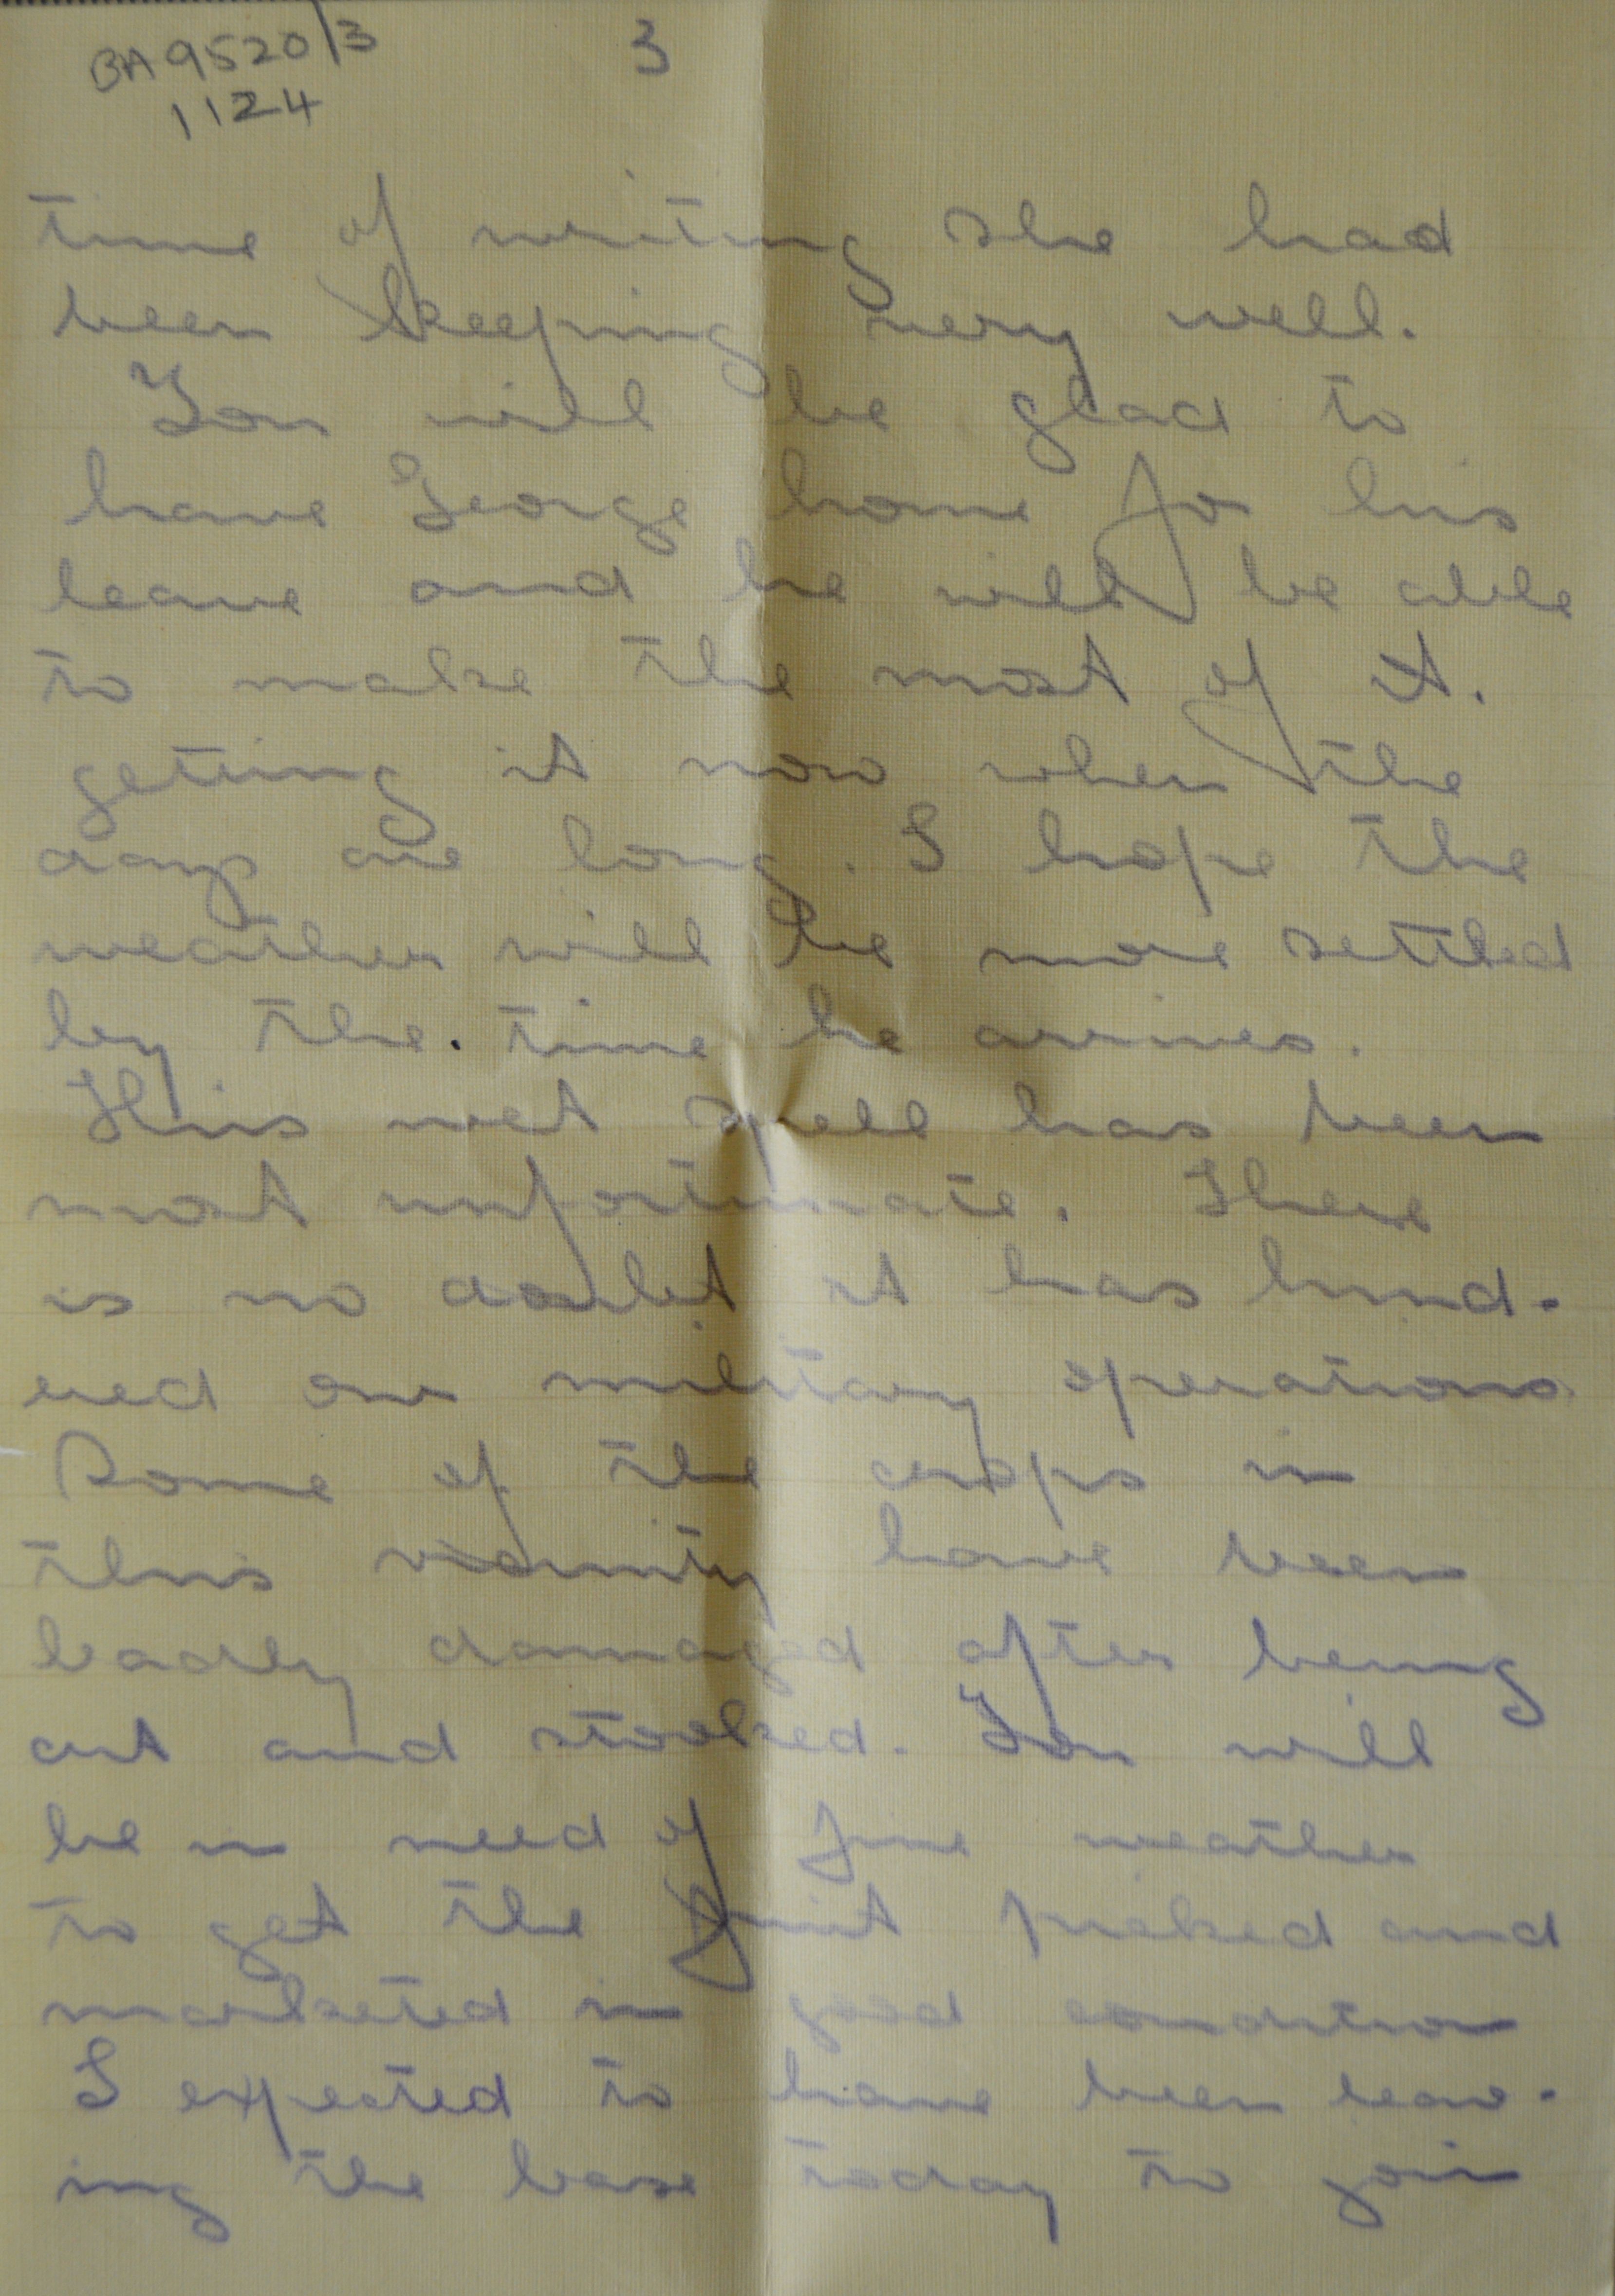 BA 9520/3
1124
3
time of writing she had
been keeping very well.
You will be glad to
have George home for his
leave and he will be able
to make the most of it.
getting it now when the
days are long. I hope the
weather will be more settled
by the. time he arrives.
This wet spell has been
most unfortunate. There
is no doubt it has hind-
ered our military operations.
Some of the crops in
this vicinity have been
badly damaged after being
cut and stooked. You will
be in need of fine weather
to get the fruit picked and
marketed in good condition
I expected to have been leav-
ing the base today to join